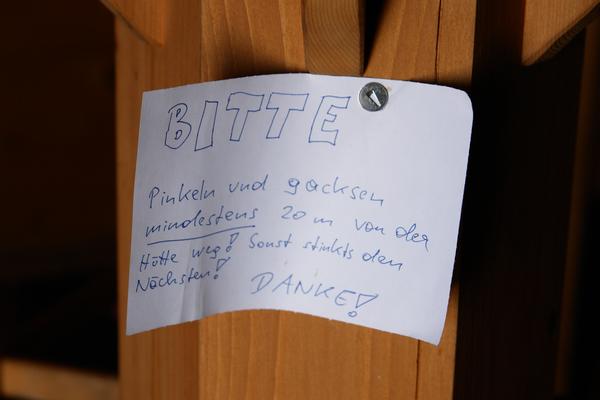 BITTE
Pinkeln und gacksen
mindestens 20 m von der
Hütte weg! Sonst stinkts den
Nächsten!
DANKE!